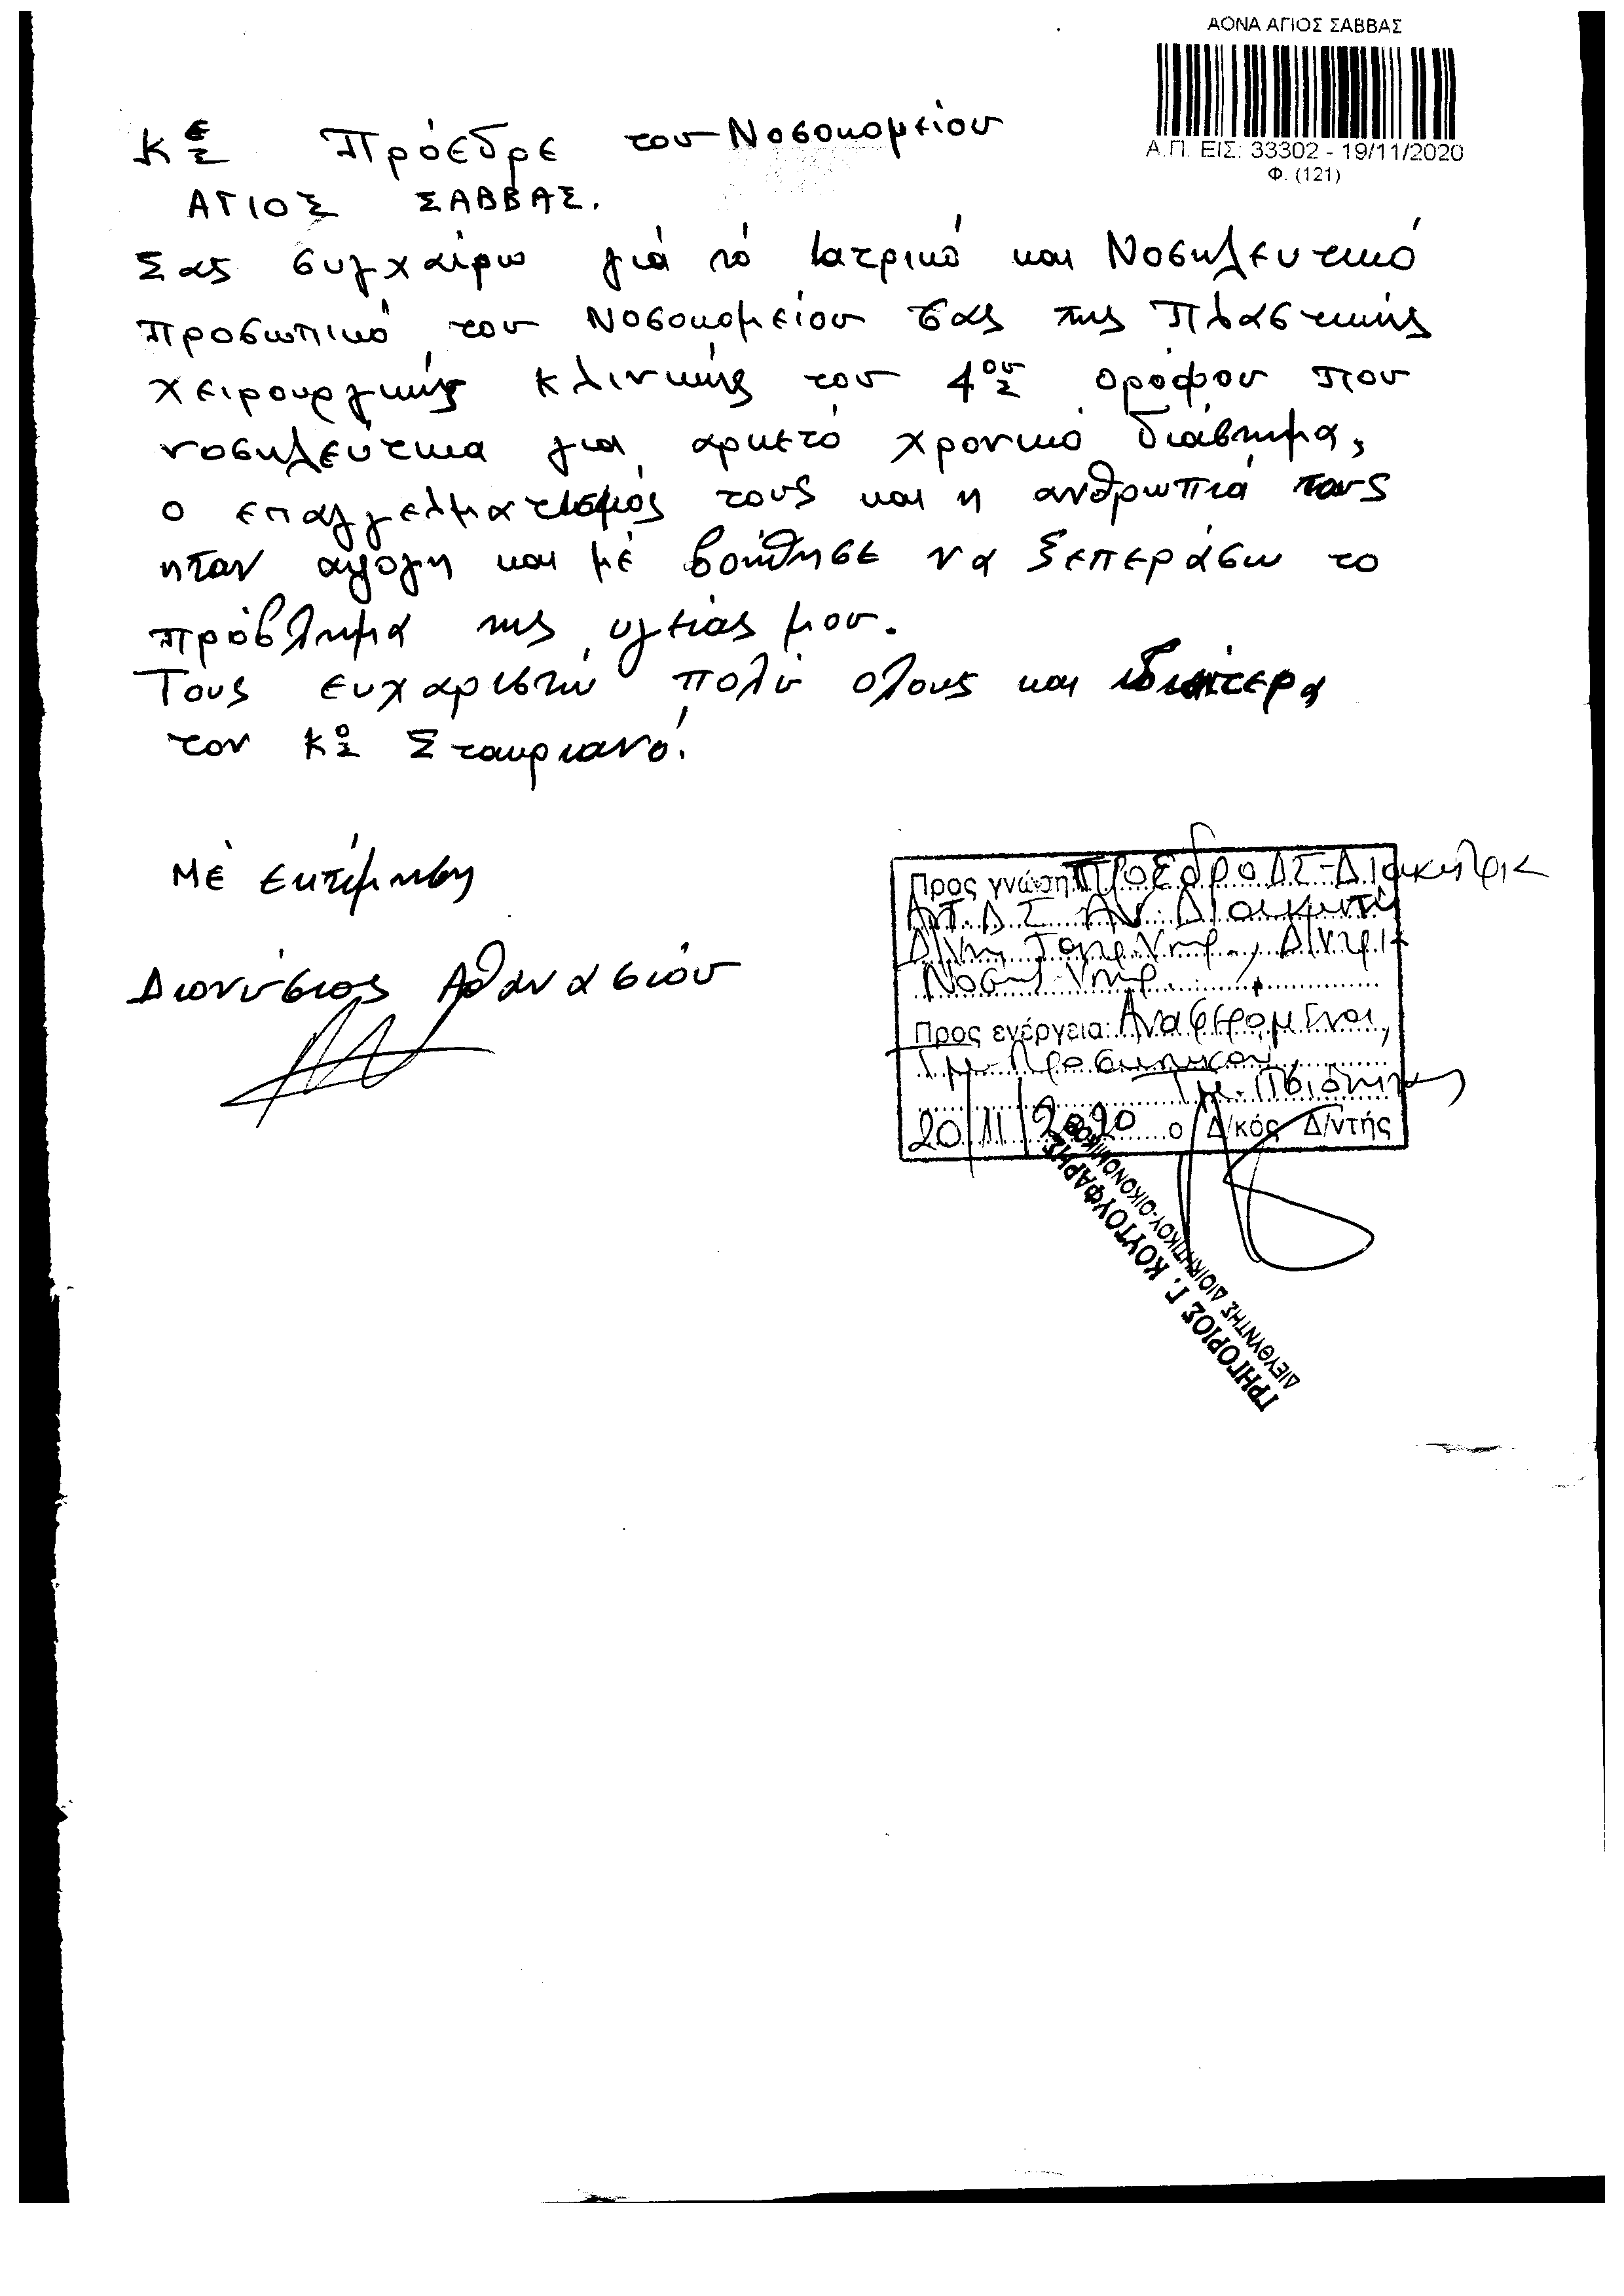 ΑΟΝΑ ΑΓΙΟΣ ΣΑΒΒΑΣ
Α.Π. ΕΙΣ: 33302 - 19/11/2020
Φ. (121)
Κε Πρόεδρε του Νοσοκομείου
ΑΓΙΟΣ ΣΑΒΒΑΣ.
Σας συγχαίρω γιά τό Ιατρικό και Νοσηλευτικό
προσωπικό του Νοσοκομείου σας της Πλαστικής
χειρουργικής κλινικής του 4ου ορόφου που
νοσηλεύτικα για αρκετό χρονικό διάστημα,
ο επαγγελματισμός τους και η ανθρωπιά τους
ηταν αψογη και μέ βοήθησε να ξεπεράσω το
πρόβλημα της υγείας μου.
Τους ευχαριστώ πολύ ολους και ιδιαίτερα
τον Κο Σταυριανό.
Μέ εκτίμηση
Διονύσιος Αθανασίου
Προς γνώση: Πρόεδρο ΔΣ-Διοικήτρια
ΑΠ.Δ.Σ. ΑΝ. Διοικητή
Δ/νη Ιατρ. Υπηρ., Δ/ντρια
Νοσ. Υπηρ.
Προς ενέργεια: Αναφερόμενοι,
Τμ. Προσωπικού,
Τμ. Ποιότητας
20/11/2020 ο Δ/κός Δ/ντής
ΓΡΗΓΟΡΙΟΣ Γ. ΚΟΥΤΟΥΦΑΡΗΣ
ΔΙΕΥΘΥΝΤΗΣ ΔΙΟΙΚΗΤΙΚΟΥ-ΟΙΚΟΝΟΜΙΚΟΥ